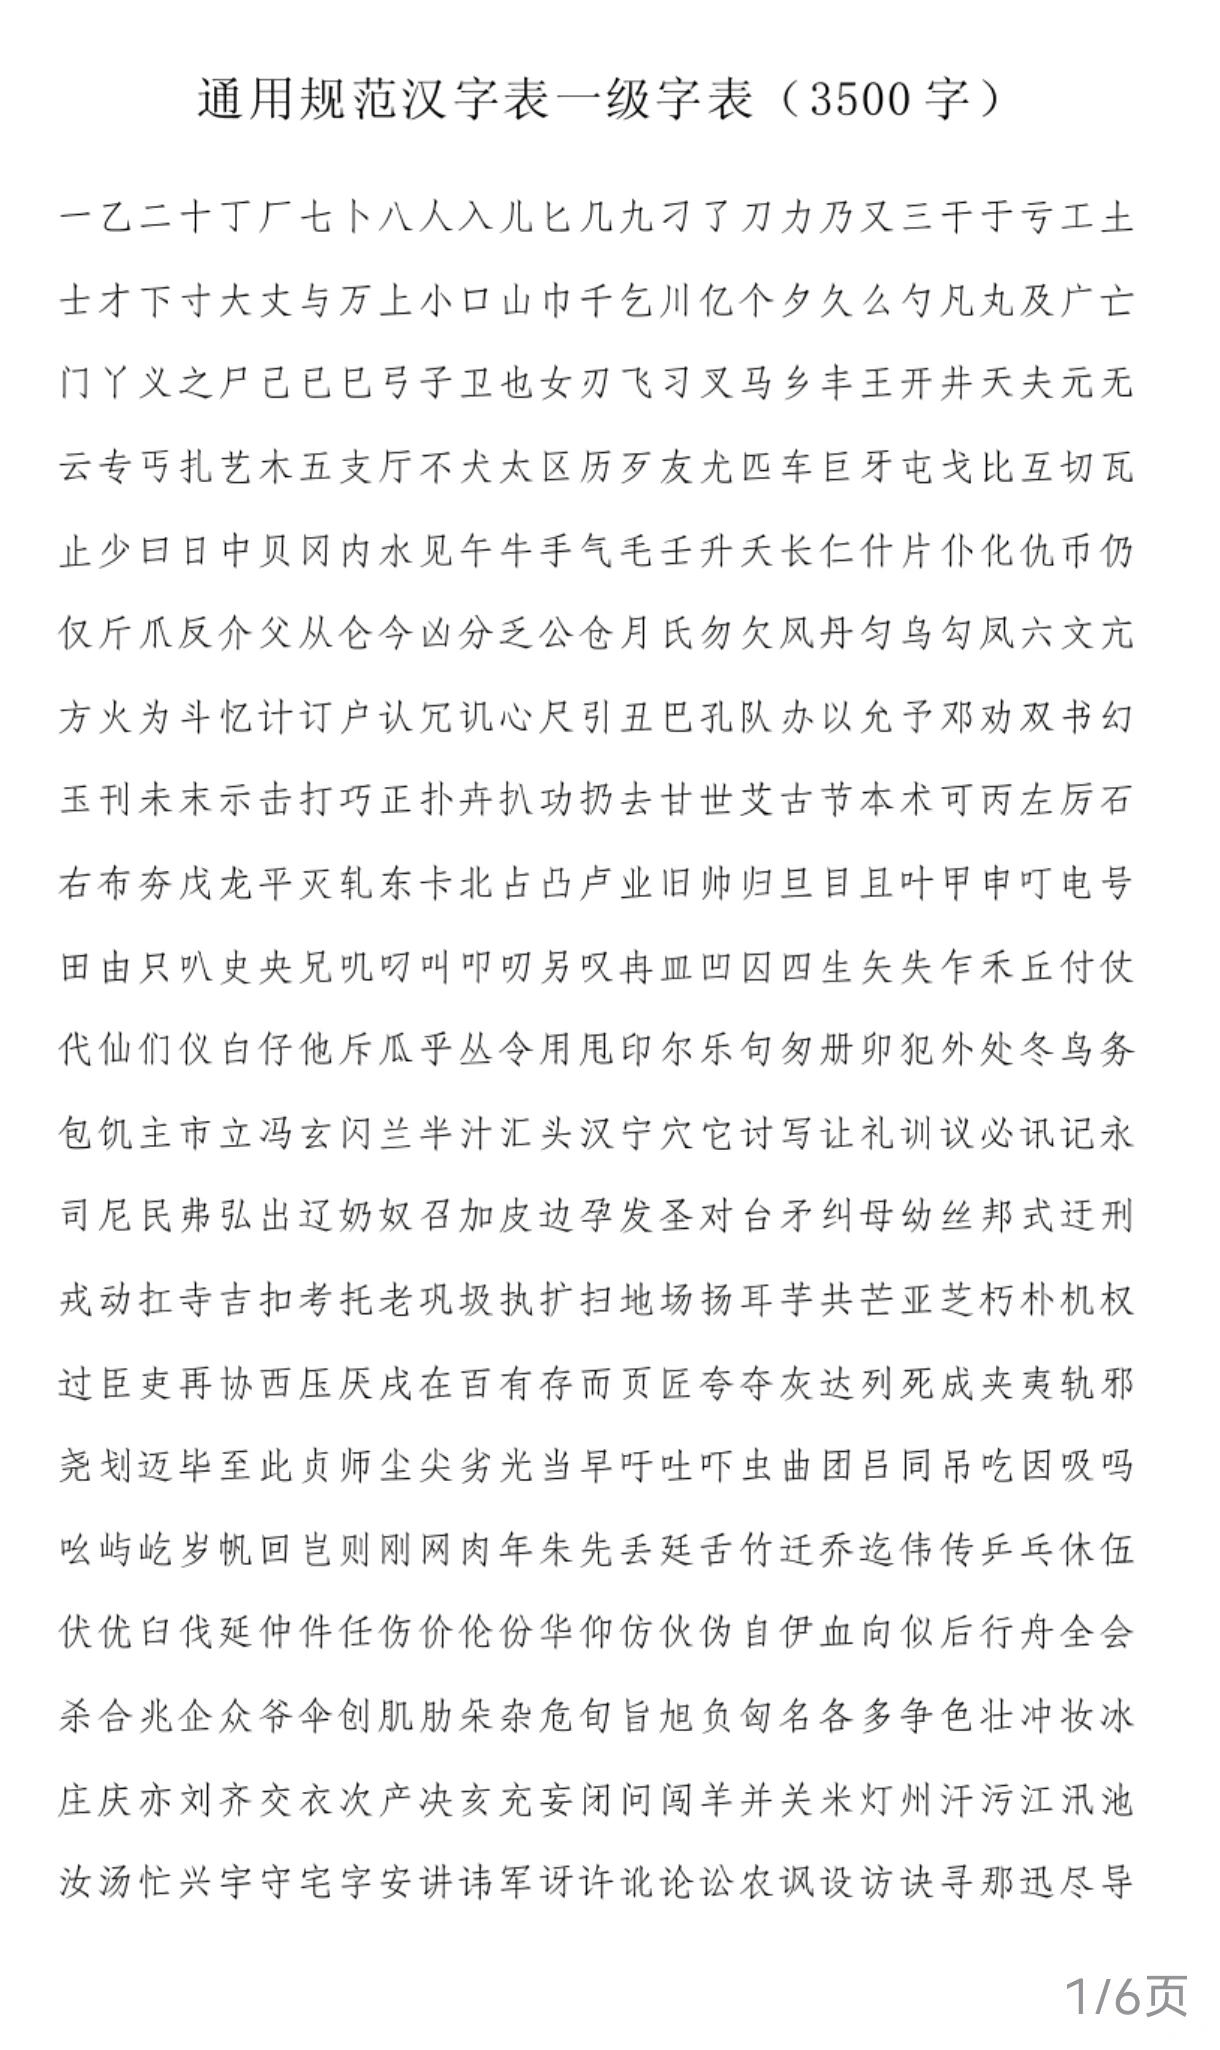 通用规范汉字表一级字表（3500字）
一乙二十丁厂七卜八人入儿匕几九刁了刀力乃又三干于亏工土
士才下寸大丈与万上小口山巾千乞川亿个夕久么勺凡丸及广亡
门丫义之尸己已巳弓子卫也女刃飞习叉马乡丰王开井天夫元无
云专丐扎艺木五支厅不犬太区历歹友尤匹车巨牙屯戈比互切瓦
止少曰日中贝冈内水见午牛手气毛壬升夭长仁什片仆化仇币仍
仅斤爪反介父从仑今凶分乏公仓月氏勿欠风丹匀乌勾凤六文亢
方火为斗忆计订户认冗讥心尺引丑巴孔队办以允予邓劝双书幻
玉刊未末示击打巧正扑卉扒功扔去甘世艾古节本术可丙左厉石
右布夯戊龙平灭轧东卡北占凸卢业旧帅归旦目且叶甲申叮电号
田由只叭史央兄叽叼叫叩叨另叹冉皿凹囚四生矢失乍禾丘付仗
代仙们仪白仔他斥瓜乎丛令用甩印尔乐句匆册卯犯外处冬鸟务
包饥主市立冯玄闪兰半汁汇头汉宁穴它讨写让礼训议必讯记永
司尼民弗弘出辽奶奴召加皮边孕发圣对台矛纠母幼丝邦式迂刑
戎动扛寺吉扣考托老巩圾执扩扫地场扬耳芋共芒亚芝朽朴机权
过臣吏再协西压厌戌在百有存而页匠夸夺灰达列死成夹夷轨邪
尧划迈毕至此贞师尘尖劣光当早吁吐吓虫曲团吕同吊吃因吸吗
吆屿屹岁帆回岂则刚网肉年朱先丢廷舌竹迁乔迄伟传乒乓休伍
伏优臼伐延仲件任伤价伦份华仰仿伙伪自伊血向似后行舟全会
杀合兆企众爷伞创肌肋朵杂危旬旨旭负匈名各多争色壮冲妆冰
庄庆亦刘齐交衣次产决亥充妄闭问闯羊并关米灯州汗污江汛池
汝汤忙兴宇守宅字安讲讳军讶许讹论讼农讽设访诀寻那迅尽导
1/6页